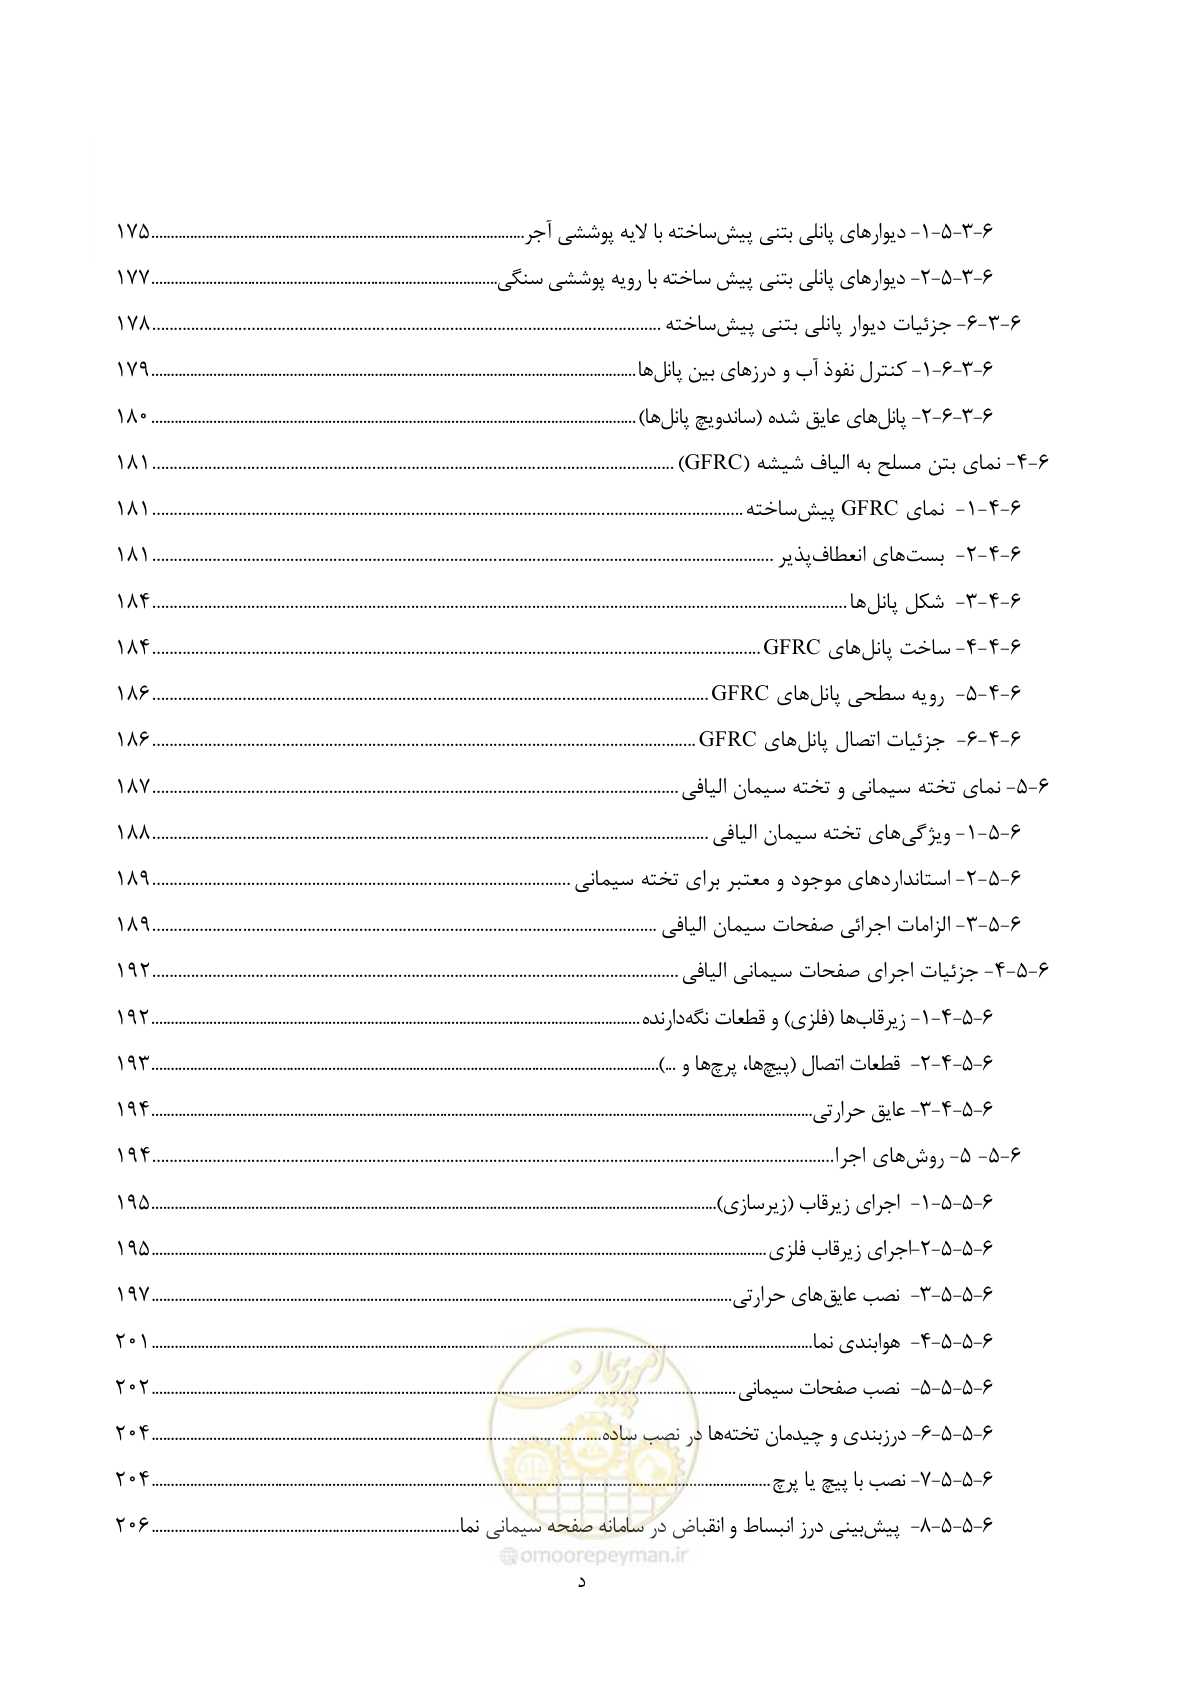 ۶-۳-۵-۱- دیوارهای پانلی بتنی پیش‌ساخته با لایه پوششی آجر...........۱۷۵
۶-۳-۵-۲- دیوارهای پانلی بتنی پیش ساخته با رویه پوششی سنگی...........۱۷۷
۶-۳-۶- جزئیات دیوار پانلی بتنی پیش‌ساخته ...........۱۷۸
۶-۳-۶-۱- کنترل نفوذ آب و درزهای بین پانل‌ها...........۱۷۹
۶-۳-۶-۲- پانل‌های عایق شده (ساندویچ پانل‌ها) ...........۱۸۰
۶-۴- نمای بتن مسلح به الیاف شیشه (GFRC) ...........۱۸۱
۶-۴-۱- نمای GFRC پیش‌ساخته ...........۱۸۱
۶-۴-۲- بست‌های انعطاف‌پذیر ...........۱۸۱
۶-۴-۳- شکل پانل‌ها ...........۱۸۴
۶-۴-۴- ساخت پانل‌های GFRC ...........۱۸۴
۶-۴-۵- رویه سطحی پانل‌های GFRC ...........۱۸۶
۶-۴-۶- جزئیات اتصال پانل‌های GFRC ...........۱۸۶
۶-۵- نمای تخته سیمانی و تخته سیمان الیافی ...........۱۸۷
۶-۵-۱- ویژگی‌های تخته سیمان الیافی ...........۱۸۸
۶-۵-۲- استانداردهای موجود و معتبر برای تخته سیمانی ...........۱۸۹
۶-۵-۳- الزامات اجرائی صفحات سیمان الیافی ...........۱۸۹
۶-۵-۴- جزئیات اجرای صفحات سیمانی الیافی ...........۱۹۲
۶-۵-۴-۱- زیرقاب‌ها (فلزی) و قطعات نگه‌دارنده ...........۱۹۲
۶-۵-۴-۲- قطعات اتصال (پیچ‌ها، پرچ‌ها و ...)...........۱۹۳
۶-۵-۴-۳- عایق حرارتی...........۱۹۴
۶-۵- ۵- روش‌های اجرا...........۱۹۴
۶-۵-۵-۱- اجرای زیرقاب (زیرسازی)...........۱۹۵
۶-۵-۵-۲-اجرای زیرقاب فلزی ...........۱۹۵
۶-۵-۵-۳- نصب عایق‌های حرارتی...........۱۹۷
۶-۵-۵-۴- هوابندی نما...........۲۰۱
۶-۵-۵-۵- نصب صفحات سیمانی ...........۲۰۲
۶-۵-۵-۶- درزبندی و چیدمان تخته‌ها در نصب ساده...........۲۰۴
۶-۵-۵-۷- نصب با پیچ یا پرچ ...........۲۰۴
۶-۵-۵-۸- پیش‌بینی درز انبساط و انقباض در سامانه صفحه سیمانی نما...........۲۰۶
امور پیمان
@omoorepeyman.ir
د